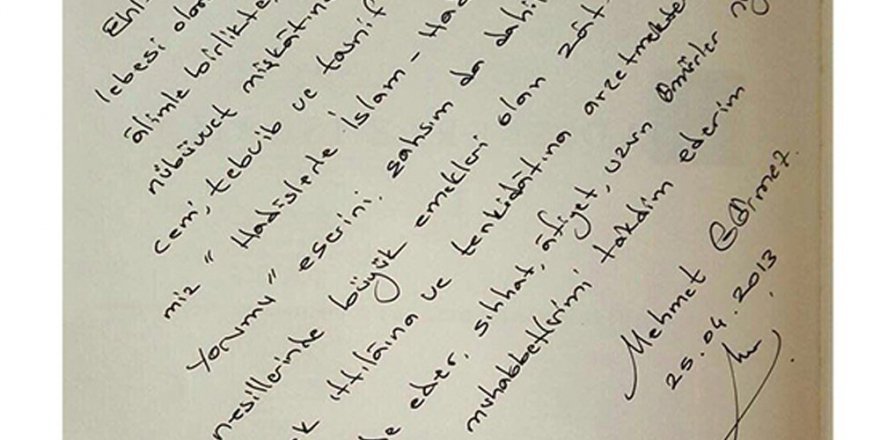 Ehl
lebesi olan
âlimle birlikte,
nübüvvet mişkâtına
cem', tebvib ve tasnif
miz "Hadislerle İslam - Had
Yorumu" eserini, şahsım da dahil
nesillerinde büyük emekleri olan zât
ıttılâına ve tenkidâtına arzetmekte
eder, sıhhat, âfiyet, uzun ömürler
muhabbetlerimi takdim ederim
Mehmet Görmez
25.04.2013